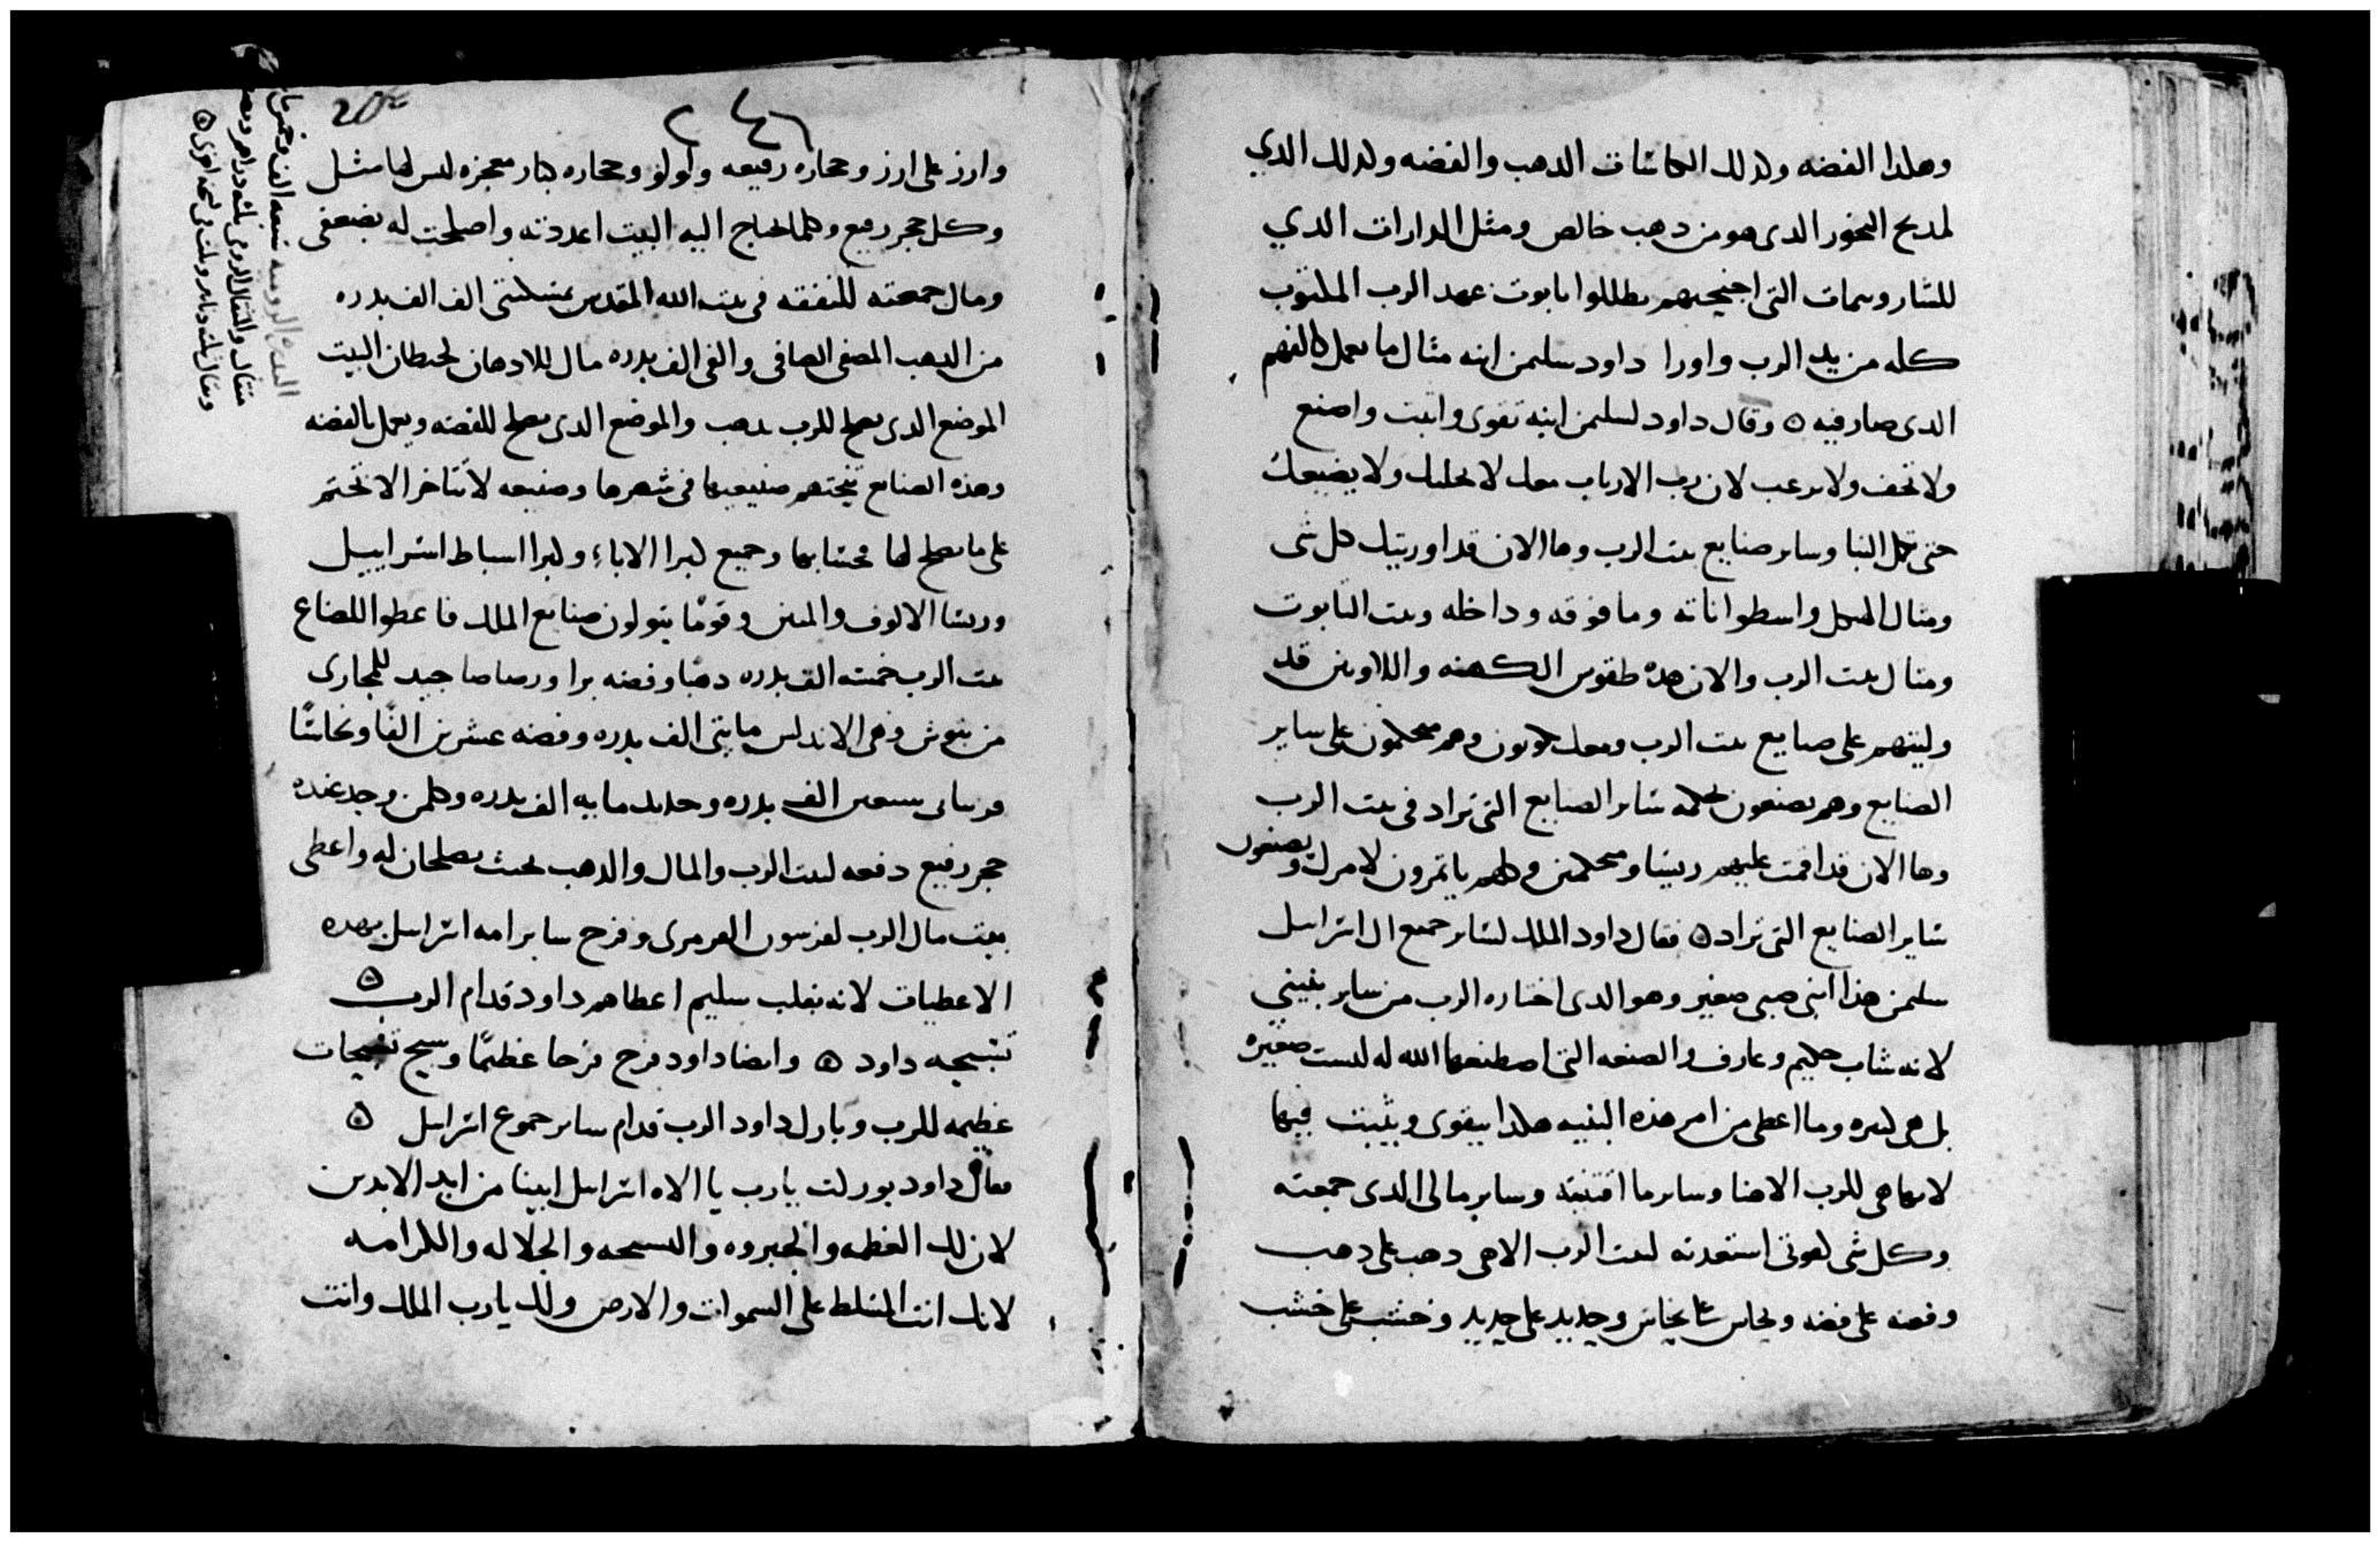 وهلذا الفضه ولذلك الكاسات الذهب والفضه ولذلك الدي
لمدبح البخور الدى هو من دهب خالص ومثل الدارات الدي
للشاروبيمات التى اجنحتهم يظللوا تابوت عهد الرب المكتوب
كله من يد الرب واورا داود سليمن ابنه مثال ما يعمل كالفهم
الدى صار فيه ٥ وقال داود لسليمن ابنه تقوى واثبت واصنع
ولا تخف ولا ترعب لان رب الارباب معك لا يخليك ولا يضيعك
حتى تكمل البنا وساير صنايع بيت الرب وها الان قد اوريتك كل شى
ومثال الهيكل واسطواناته وما فوقه وداخله وبيت التابوت
ومثال بيت الرب والان هده طقوس الكهنه واللاويين قد
وليتهم على صنايع بيت الرب ومعك يكونون وهم محكمون على ساير
الصنايع وهم يصنعون بحكمه ساير الصنايع التى تراد فى بيت الرب
وها الان قد اقمت عليهم ريسا ومحكمين وكلهم ياتمرون لامرك ويصنعون
ساير الصنايع التى تراد ٥ فقال داود الملك لساير جميع ال اسراييل
سليمن هذا ابنى صبى صغير وهو الدى اختاره الرب من ساير بنيني
لانه شاب حكيم وعارف والصنعه التى اصطنعها الله له ليست صغيره
بل هى كبيره وما اعطى من امر هذه البنيه هكدا يتقوى ويثبت فيها
لانها هى للرب الاهنا وساير ما اقتنيته وساير مالى الدى جمعته
وكل شى لقوتى استعدته لبيت الرب الاهى دهب على دهب
وفضه على فضه ونحاس على نحاس وحديد على حديد وخشب على خشب
٢٤٦
وارز على ارز وحجاره رفيعه ولولو وحجاره كبار معجزه ليس لها مثل
وكل حجر رفيع وكلما يحتاج اليه البيت اعددته واصلحت له بضعفى
ومال جمعته للنفقه فى بيت الله المقدس بمسكنتى الف الف بدره
من الدهب المصفى الصافى والفى الف بدره مال للادهان لحيطان البيت
الموضع الدى يصلح للرب بدهب والموضع الدى يصلح للفضه ويعمل بالفضه
وهذه الصنايع تختم صنيعها فى شهرها وصنيعه لا تتاخر الا تختم
على ما يصلح لها محسابها وجميع كبرا الاباء وكبرا اسباط اسراييل
وريسا الالوف والميين وقومًا يتولون صنايع الملك فاعطوا للصناع
بيت الرب خمسه الف بدره دهبا وفضه برا ورصاصا جيد للمجارى
من ينوش وهى الاندلس مايتى الف بدره وفضه عشرين الفًا ونحاسًا
بسعين الف بدره وحديد مايه الف بدره وكلمن وجد عنده
حجر رفيع دفعه لبيت الرب والمال والدهب بحيث يصلحان له واعطى
بيت مال الرب وفرح ساير امه اسراييل بهده
الاعطيات لانه بقلب سليم اعطاهم داود قدام الرب ٥
تسبيحه داود ٥ وايضا داود فرح فرحا عظيمًا وسبح تسبيحات
عظيمه للرب وبارك داود الرب قدام ساير جموع اسراييل ٥
فقال داود بوركت يا رب يا الاه اسراييل ابينا من ابد الابدين
لان لك العظمه والجبروه والتسبحه والجلاله والكرامه
لانك انت المتسلط على السموات والارض ولك يا رب الملك وانت
البدره الروميه تسعه الف وخمس
مثقال والمثقال الرومى